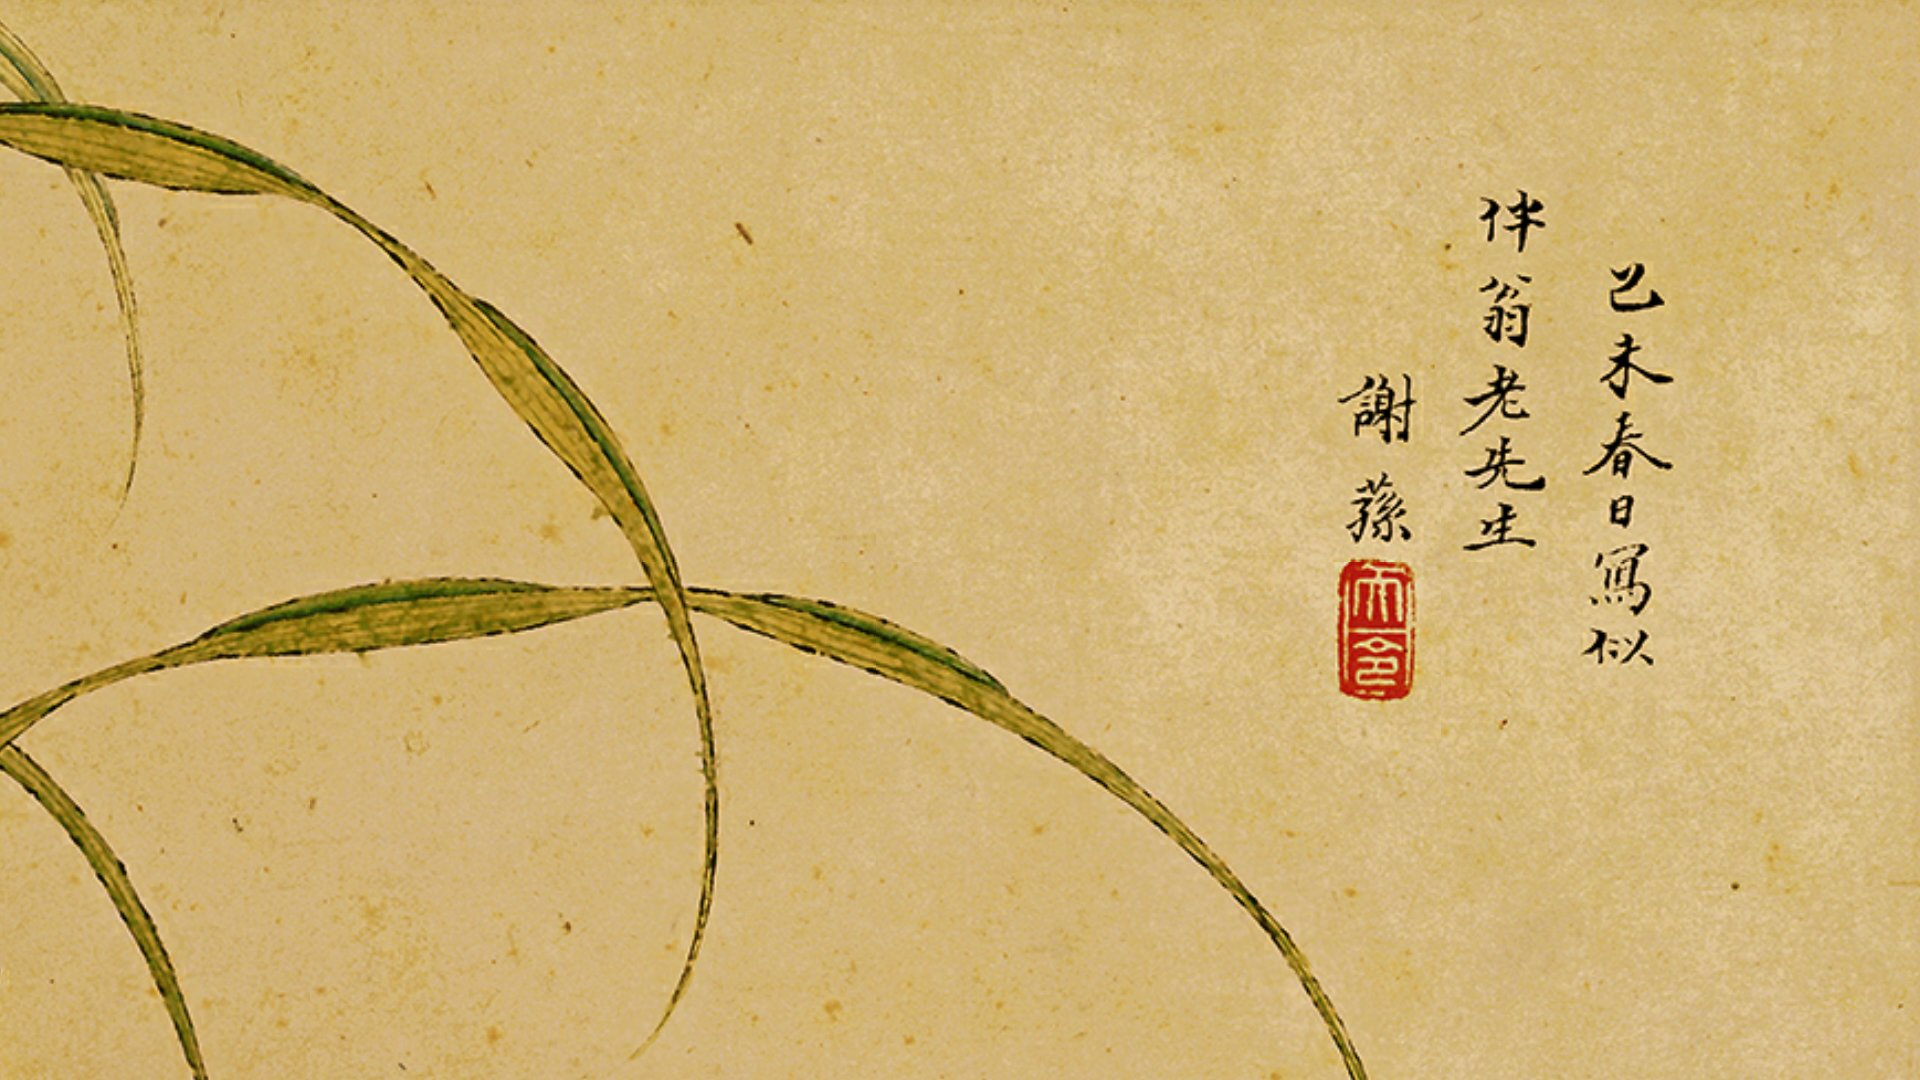 己未春日寫似
伴翁老先生
謝蓀
天令